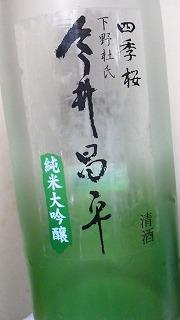 四季桜
下野杜氏
今井昌平
純米大吟醸
清酒